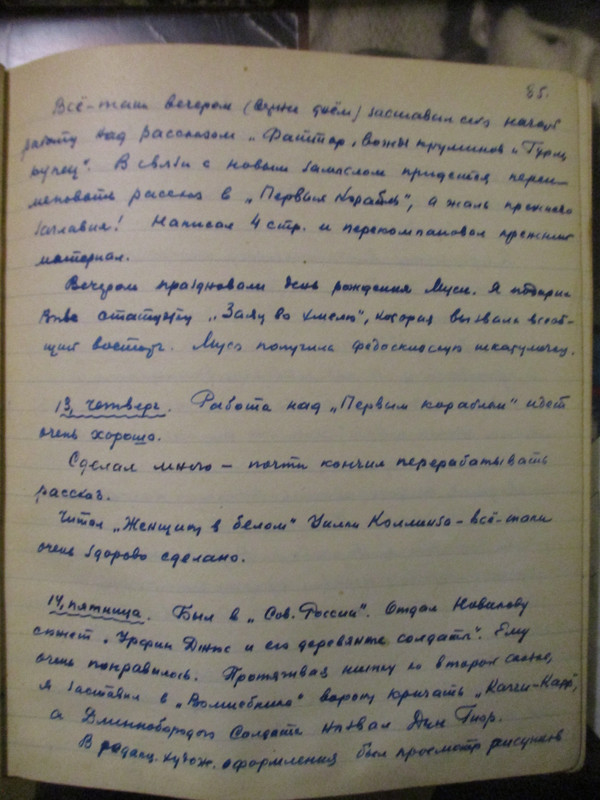 85.
Всё-таки вечером (днём) заставил себя начать
работу над рассказом „Фаттор, вождь пруминов" „Гурм
купец". В связи с новым замыслом придется переи-
меновать рассказ в „Первый корабль", а жаль прежнего
заглавия! Написал 4 стр. и перекомпановал прежний
материал.
Вечером праздновали день рождения Муси. Я подарил
статуэтку „Заяц во хмелю", которая вызвала всеоб-
щий восторг. Муся получила федоскинскую шкатулочку.
13, четверг. Работа над „Первым кораблем" идет
очень хорошо.
Сделал много – почти кончил перерабатывать
рассказ.
Читал „Женщину в белом" Уилки Коллинза – всё-таки
очень здорово сделано.
14, пятница. Был в „Сов. России". Отдал Новикову
сюжет „Урфин Джюс и его деревянные солдаты". Ему
очень понравилось. Протягивая нитку ко второй сказке,
я заставил в „Волшебнике" ворону кричать „Кагги-Карр",
а Длиннобородого Солдата назвал Дин Гиор.
В редакц. худож. оформления был просмотр рисунков